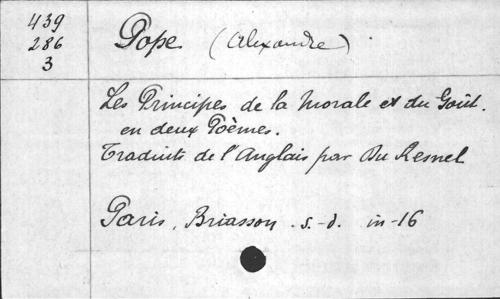 439
286
3
Pope (Alexandre)
Les Principes de la Morale et du Goût.
en deux Poèmes.
Traduits de l'Anglais par Du Resnel
Paris, Briasson. s.-d. in-16